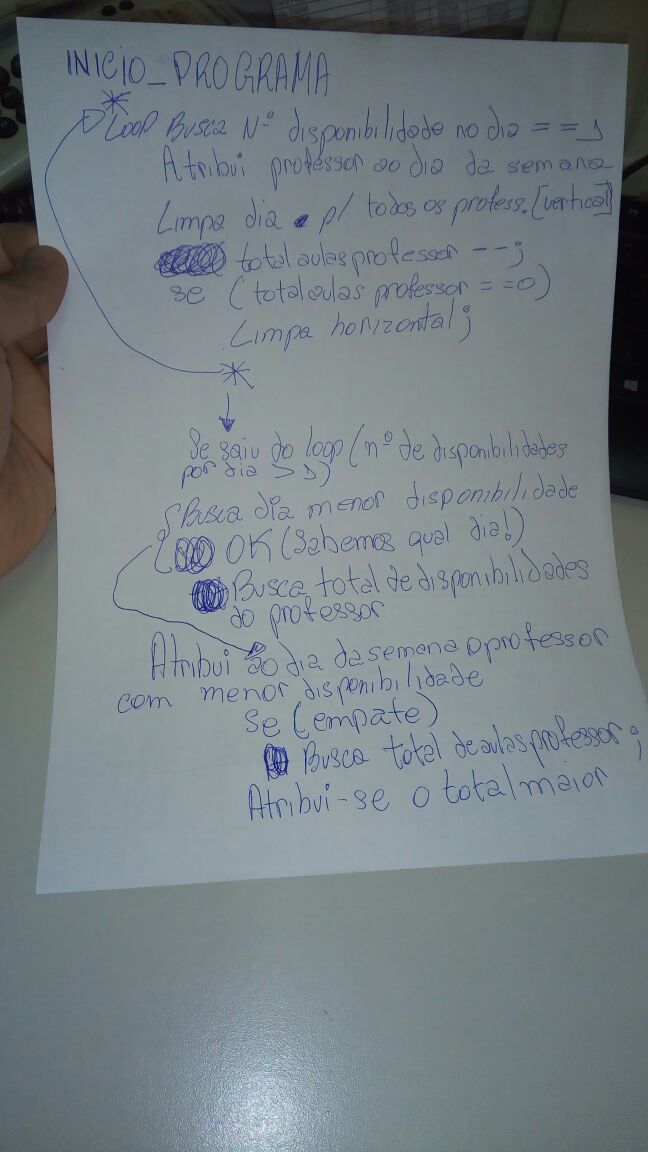 INICIO_PROGRAMA
Loop Busca Nº disponibilidade no dia == 1
Atribui professor ao dia da semana
Limpa dia p/ todos os profess. [vertical]
total aulas professor --;
se (total aulas professor ==0)
Limpa horizontal;
Se saiu do loop (nº de disponibilidades
por dia > 1)
Busca dia menor disponibilidade
OK (Sabemos qual dia!)
Busca total de disponibilidades
do professor
Atribui ao dia da semana o professor
com menor disponibilidade
se (empate)
Busca total de aulas professor;
Atribui-se o total maior